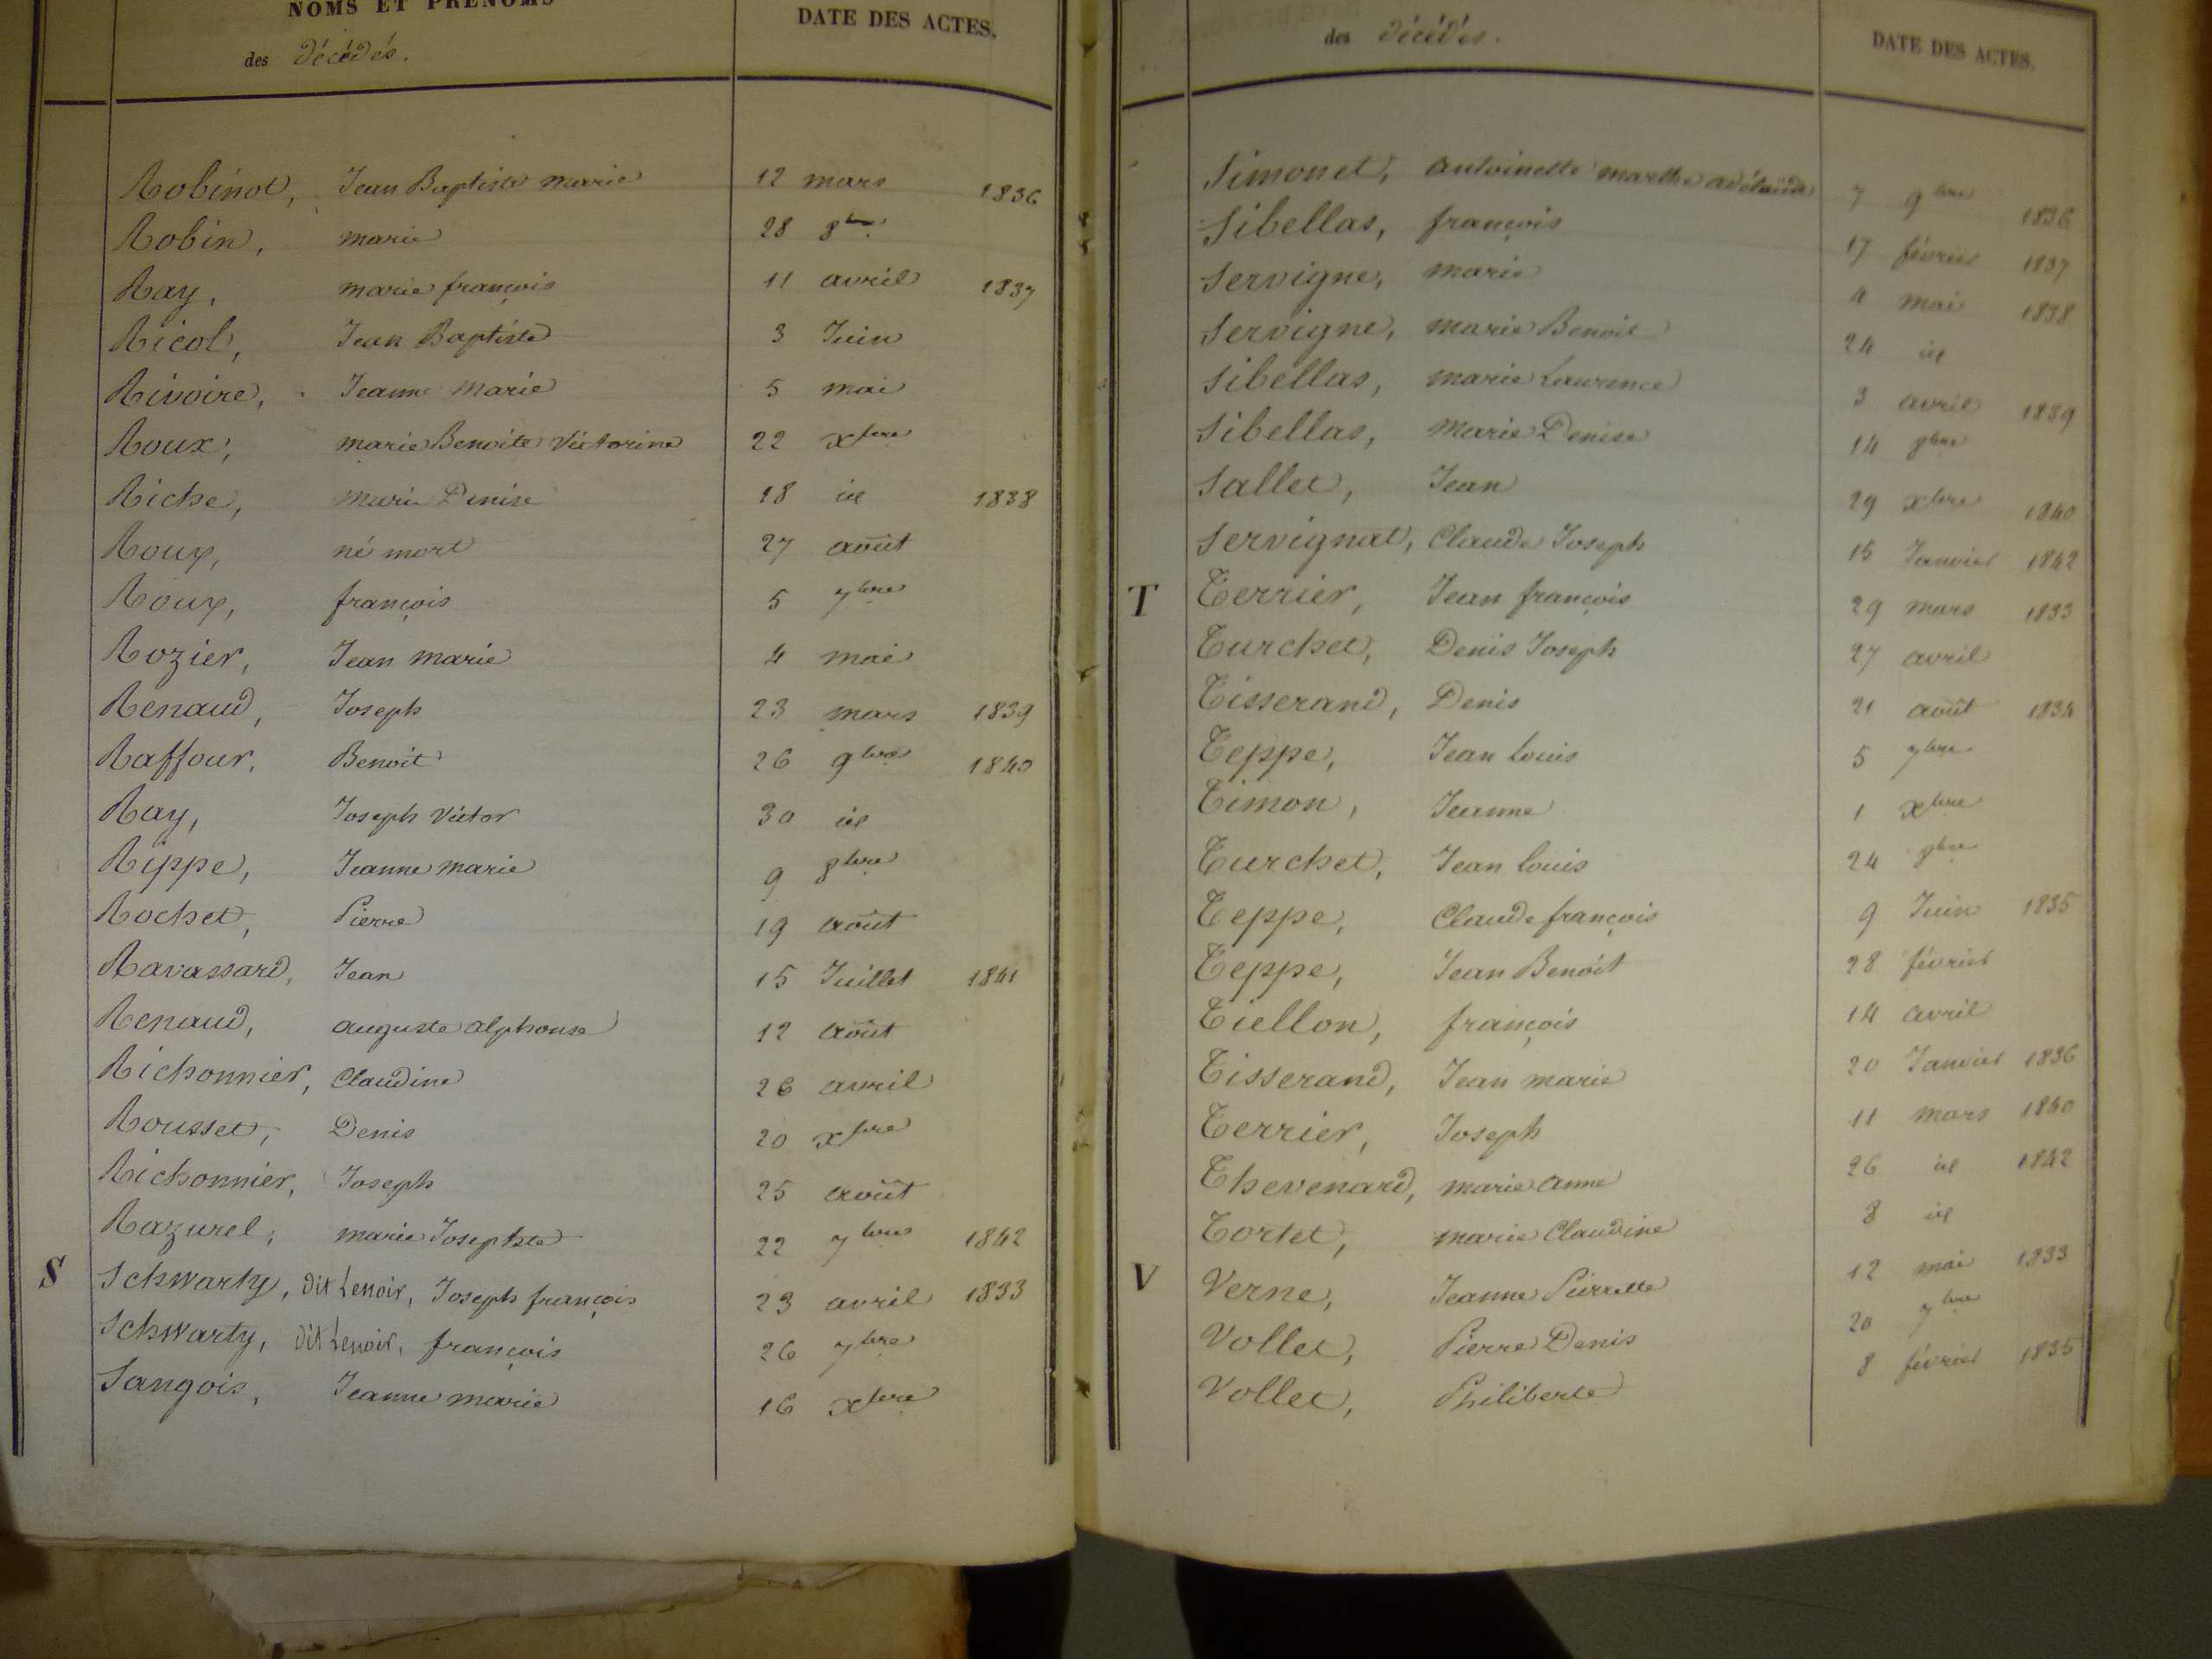 NOMS ET PRÉNOMS
des décédés.
DATE DES ACTES.
Robinot, Jean Baptiste marie 12 mars 1836
Robin, marie 28 8bre
Ray, marie françois 11 avril 1837
Ricol, Jean Baptiste 3 Juin
Rivoire, Jeanne Marie 5 mai
Roux, marie Benoite Victorine 22 xbre
Riche, Marie Denise 18 id 1838
Roux, né mort 27 août
Roux, françois 5 7bre
Rozier, Jean marie 4 mai
Renaud, Joseph 23 mars 1839
Raffour, Benoit 26 9bre 1840
Ray, Joseph Victor 30 id
Rippe, Jeanne marie 9 8bre
Rochet, Pierre 19 août
Ravassard, Jean 15 Juillet 1841
Renaud, auguste alphonse 12 août
Richonnier, Claudine 26 avril
Rousset, Denis 20 xbre
Richonnier, Joseph 25 août
Razurel, marie Josephte 22 7bre 1842
S Schwarty, dit Lenoir, Joseph françois 23 avril 1833
Schwarty, dit Lenoir, françois 26 7bre
Sangois, Jeanne marie 16 xbre
des décédés.
DATE DES ACTES.
Simonet, antoinette marthe adélaïde 7 9bre 1836
Sibellas, françois 17 février 1837
Servigne, marie 4 mai 1838
Servigne, marie Benoit 24 id
Sibellas, marie Laurence 3 avril 1839
Sibellas, Marie Denise 14
Sallet, Jean 29 xbre 1840
Servignat, Claude Joseph 15 Janvier 1842
T Terrier, Jean françois 29 mars 1833
Turchet, Denis Joseph 27 avril
Tisserand, Denis 21 août 1834
Teppe, Jean Louis 5 7bre
Timon, Jeanne 1 xbre
Turchet, Jean Louis 24
Teppe, Claude françois 9 Juin 1835
Teppe, Jean Benoit 28 février
Tiellon, françois 14 avril
Tisserand, Jean marie 20 Janvier 1836
Terrier, Joseph 11 mars 1840
Thevenard, marie anne 26 id 1842
Tortet, marie Claudine 8 id
V Verne, Jeanne Pierrette 12 mai 1833
Vollet, Pierre Denis 20 7bre
Vollet, Philiberte 8 février 1835